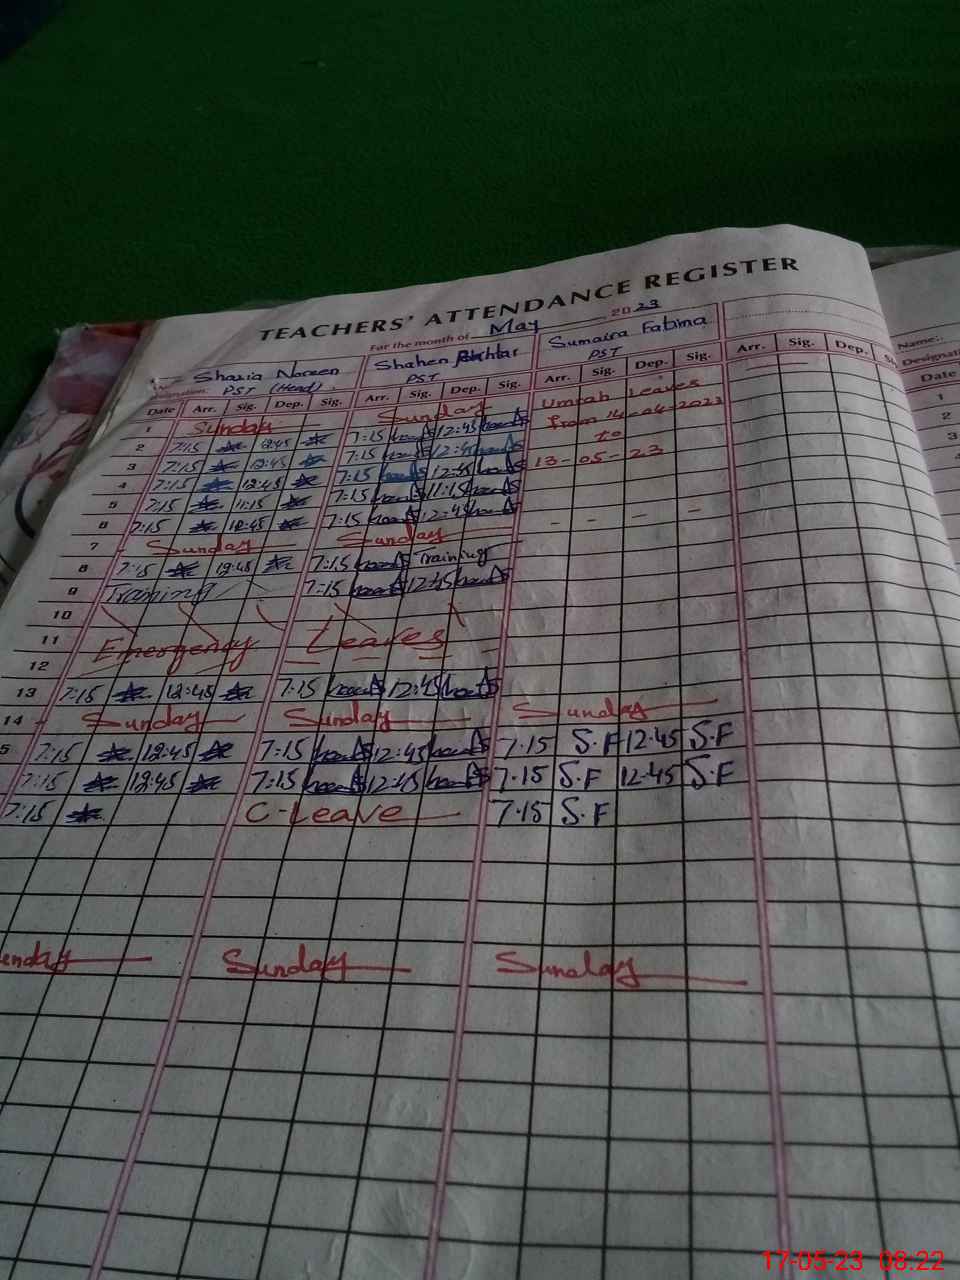 TEACHERS' ATTENDANCE REGISTER
For the month of May 2023
Shazia Noreen Shahen Akhtar Sumaira Fatima
Designation: PST (Head) PST PST
Date Arr. Sig. Dep. Sig. Arr. Sig. Dep. Sig. Arr. Sig. Dep. Sig. Arr. Sig. Dep.
1 Sunday Sunday Umrah Leaves
2 7:15 12:45 7:15 12:45 from 14-04-2023
3 7:15 12:45 7:15 12:45 to
4 7:15 12:45 7:15 12:45 13-05-23
5 7:15 11:15 7:15 11:15
6 7:15 12:45 7:15 12:45
7 Sunday Sunday
8 7:15 12:45 7:15 Training
9 Training 7:15 12:45
10
11 Emergency Leaves
12
13 7:15 12:45 7:15 12:45
14 Sunday Sunday Sunday
5 7:15 12:45 7:15 12:45 7.15 S.F 12.45 S.F
7:15 12:45 7:15 12:45 7.15 S.F 12.45 S.F
7:15 C-Leave 7.15 S.F
Sunday Sunday
Name:
Designati
Date
1
2
3
17-05-23 08:22